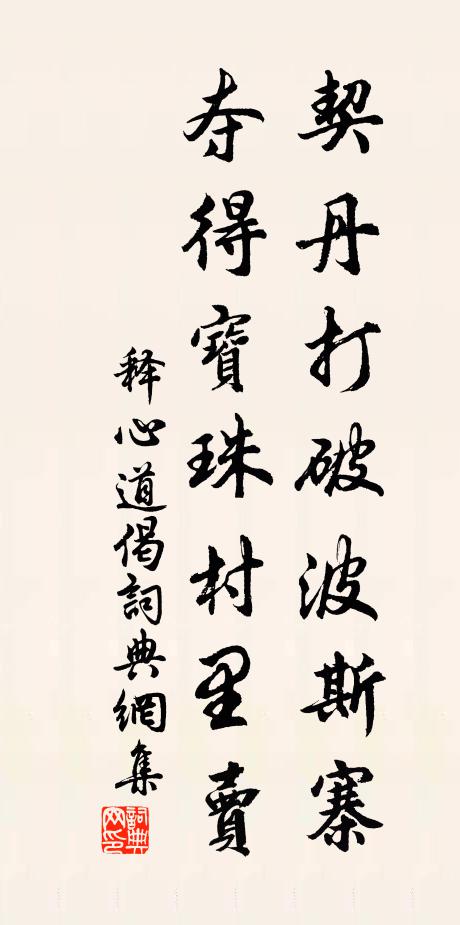 契丹打破波斯寨
夺得寶珠村里賣
释心道偈詞典網集
詞典网印